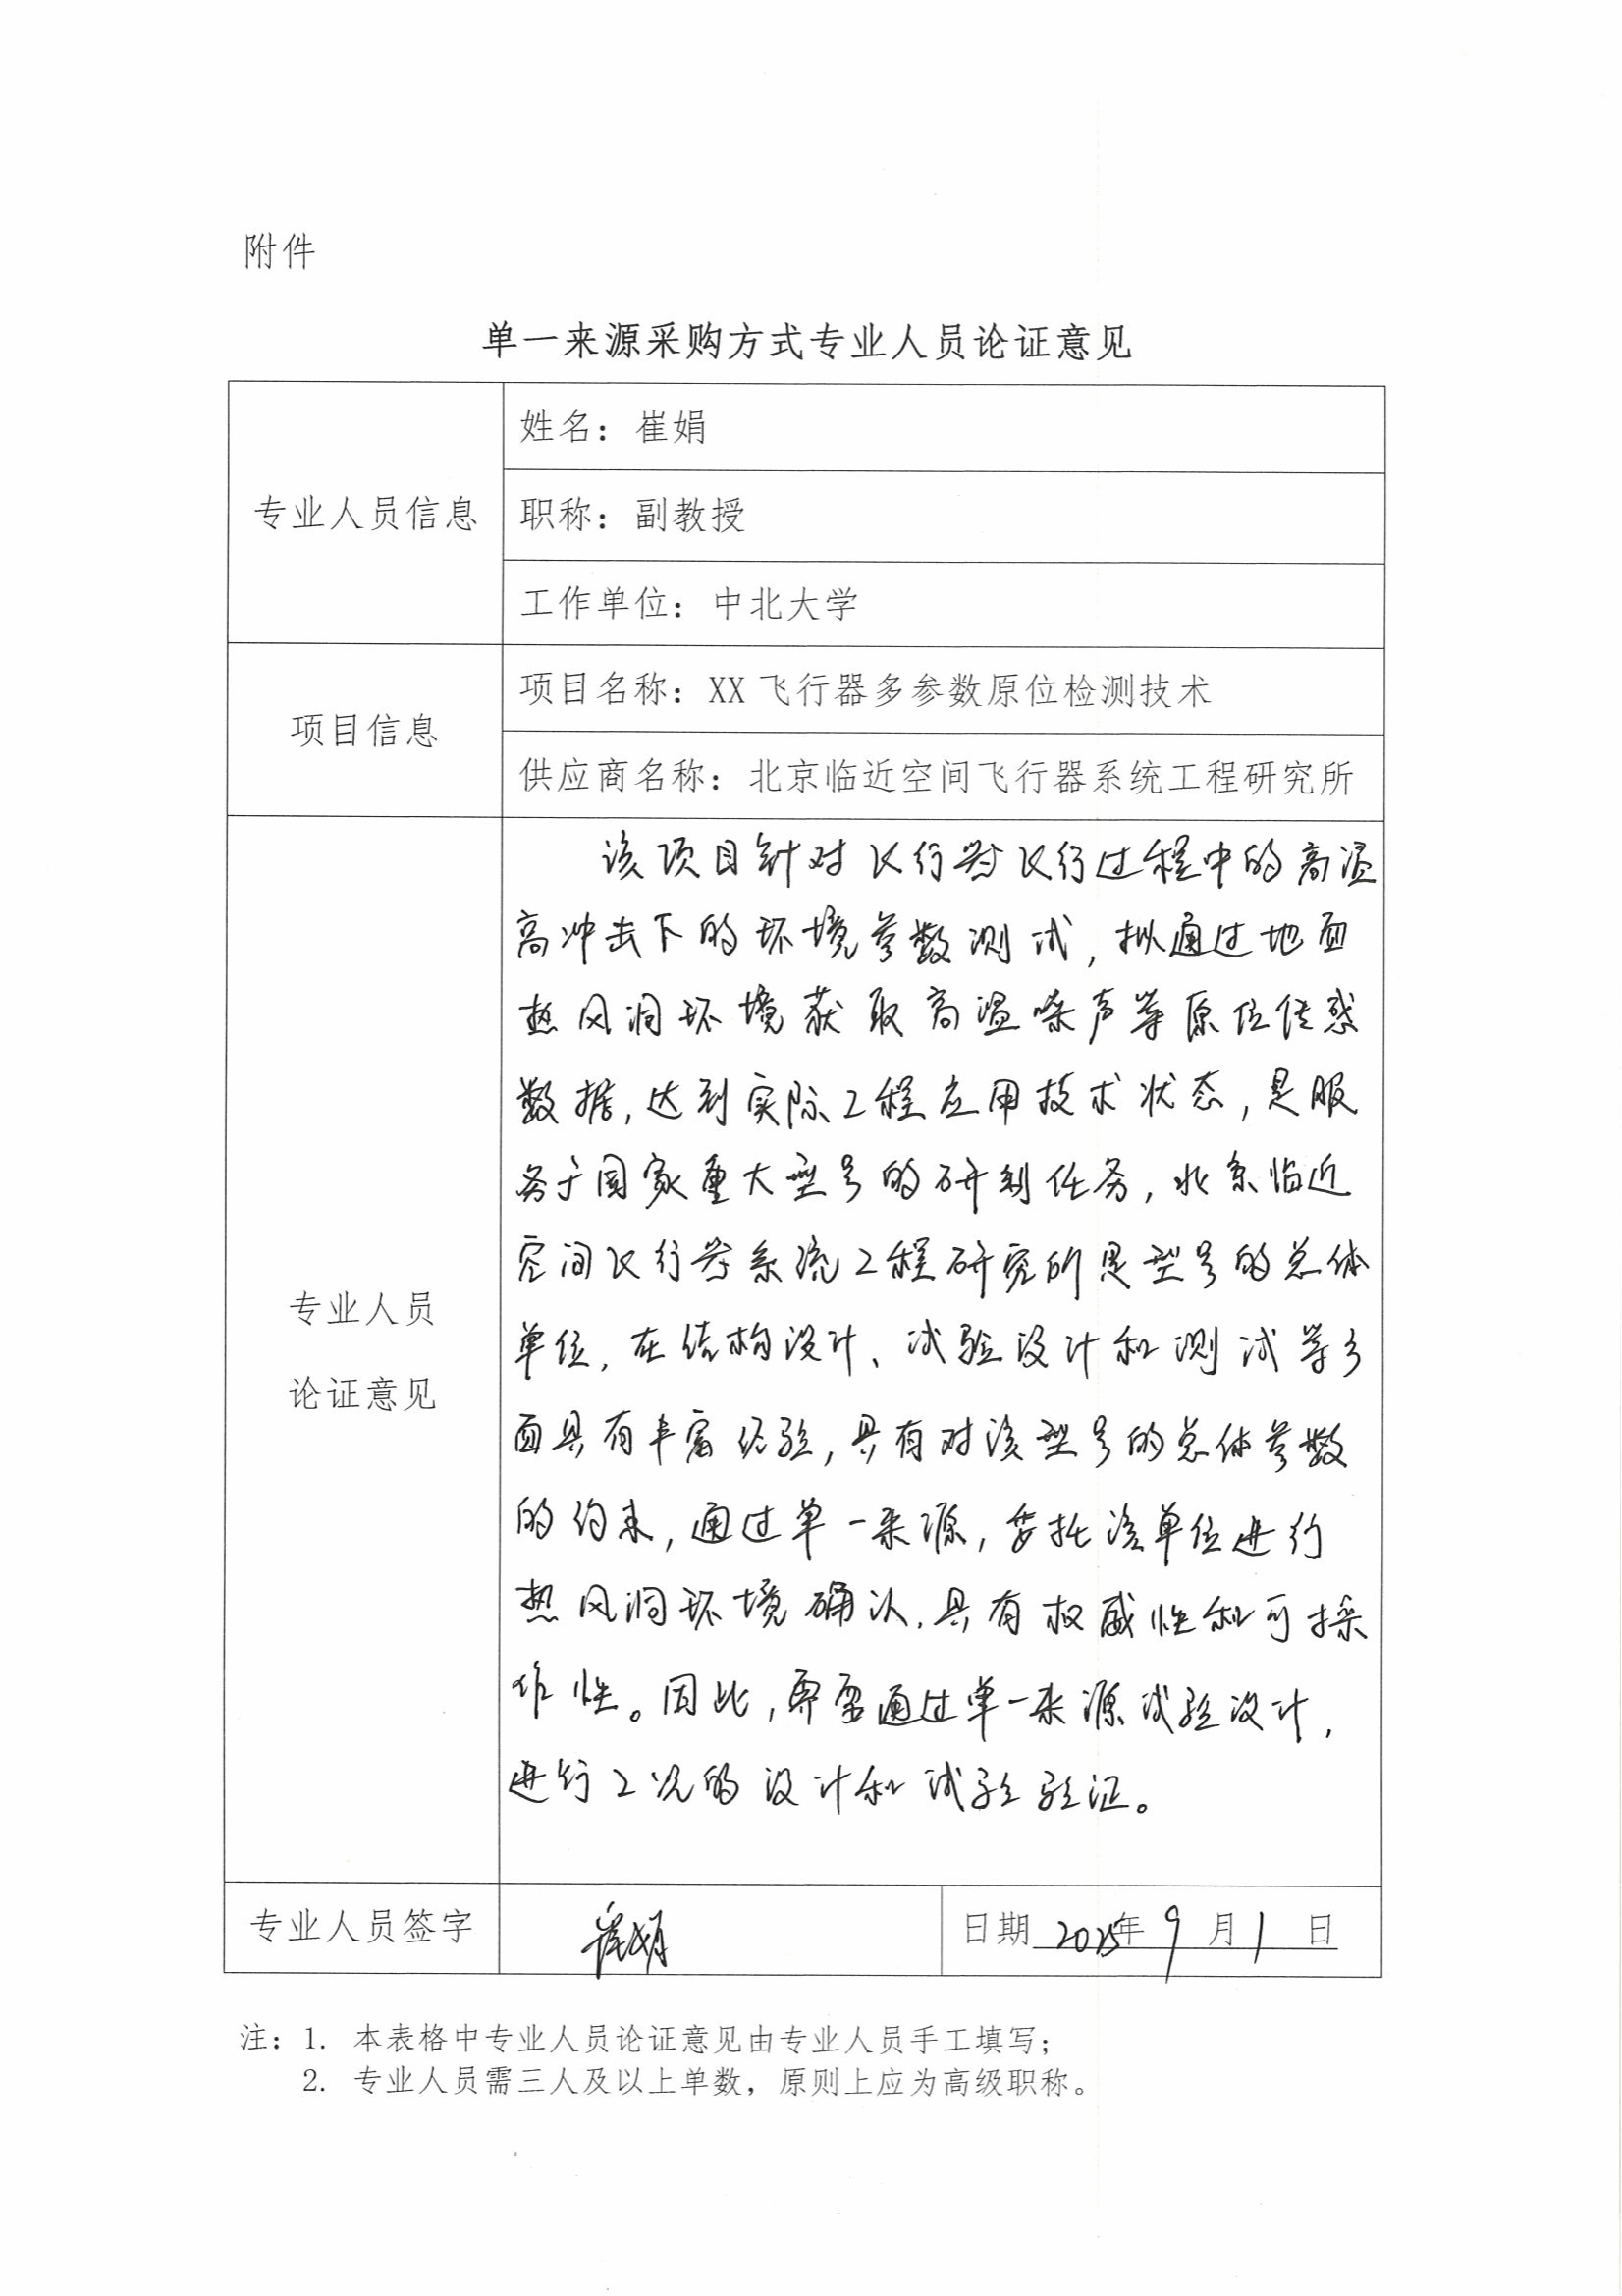 附件
单一来源采购方式专业人员论证意见
专业人员信息
姓名：崔娟
职称：副教授
工作单位：中北大学
项目信息
项目名称：XX 飞行器多参数原位检测技术
供应商名称：北京临近空间飞行器系统工程研究所
专业人员
论证意见
该项目针对飞行器飞行过程中的高温
高冲击下的环境参数测试，拟通过地面
热风洞环境获取高温噪声等原位传感
数据，达到实际工程应用技术状态，是服
务于国家重大型号的研制任务，北京临近
空间飞行器系统工程研究所是型号的总体
单位，在结构设计、试验设计和测试等方
面具有丰富经验，具有对该型号的总体参数
的约束，通过单一来源，委托该单位进行
热风洞环境确认，具有权威性和可操
作性。因此，需要通过单一来源试验设计，
进行工况的设计和试验验证。
专业人员签字
崔娟
日期 2025年 9 月 1 日
注：1. 本表格中专业人员论证意见由专业人员手工填写；
2. 专业人员需三人及以上单数，原则上应为高级职称。